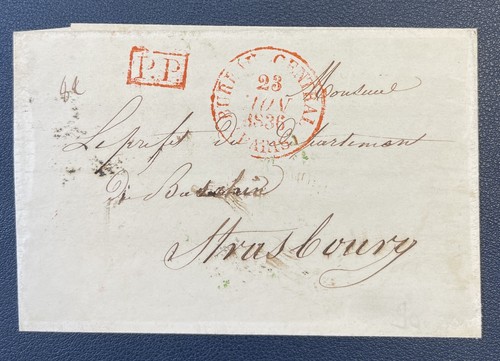 P.P.
BUREAU CENTRAL
23
JUIN
1836
PARIS
Monsieur
Le préfet du Département
du Bas Rhin
Strasbourg